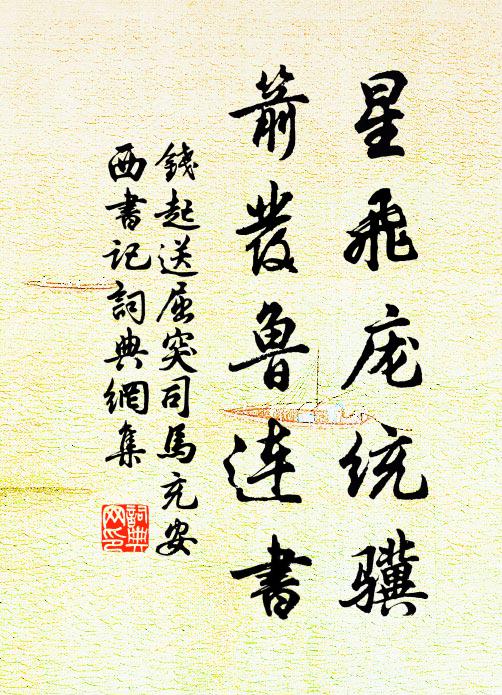 星飛庞统骥
箭發魯連書
錢起送屈突司馬充安
西書記詞典網集
詞典
网印